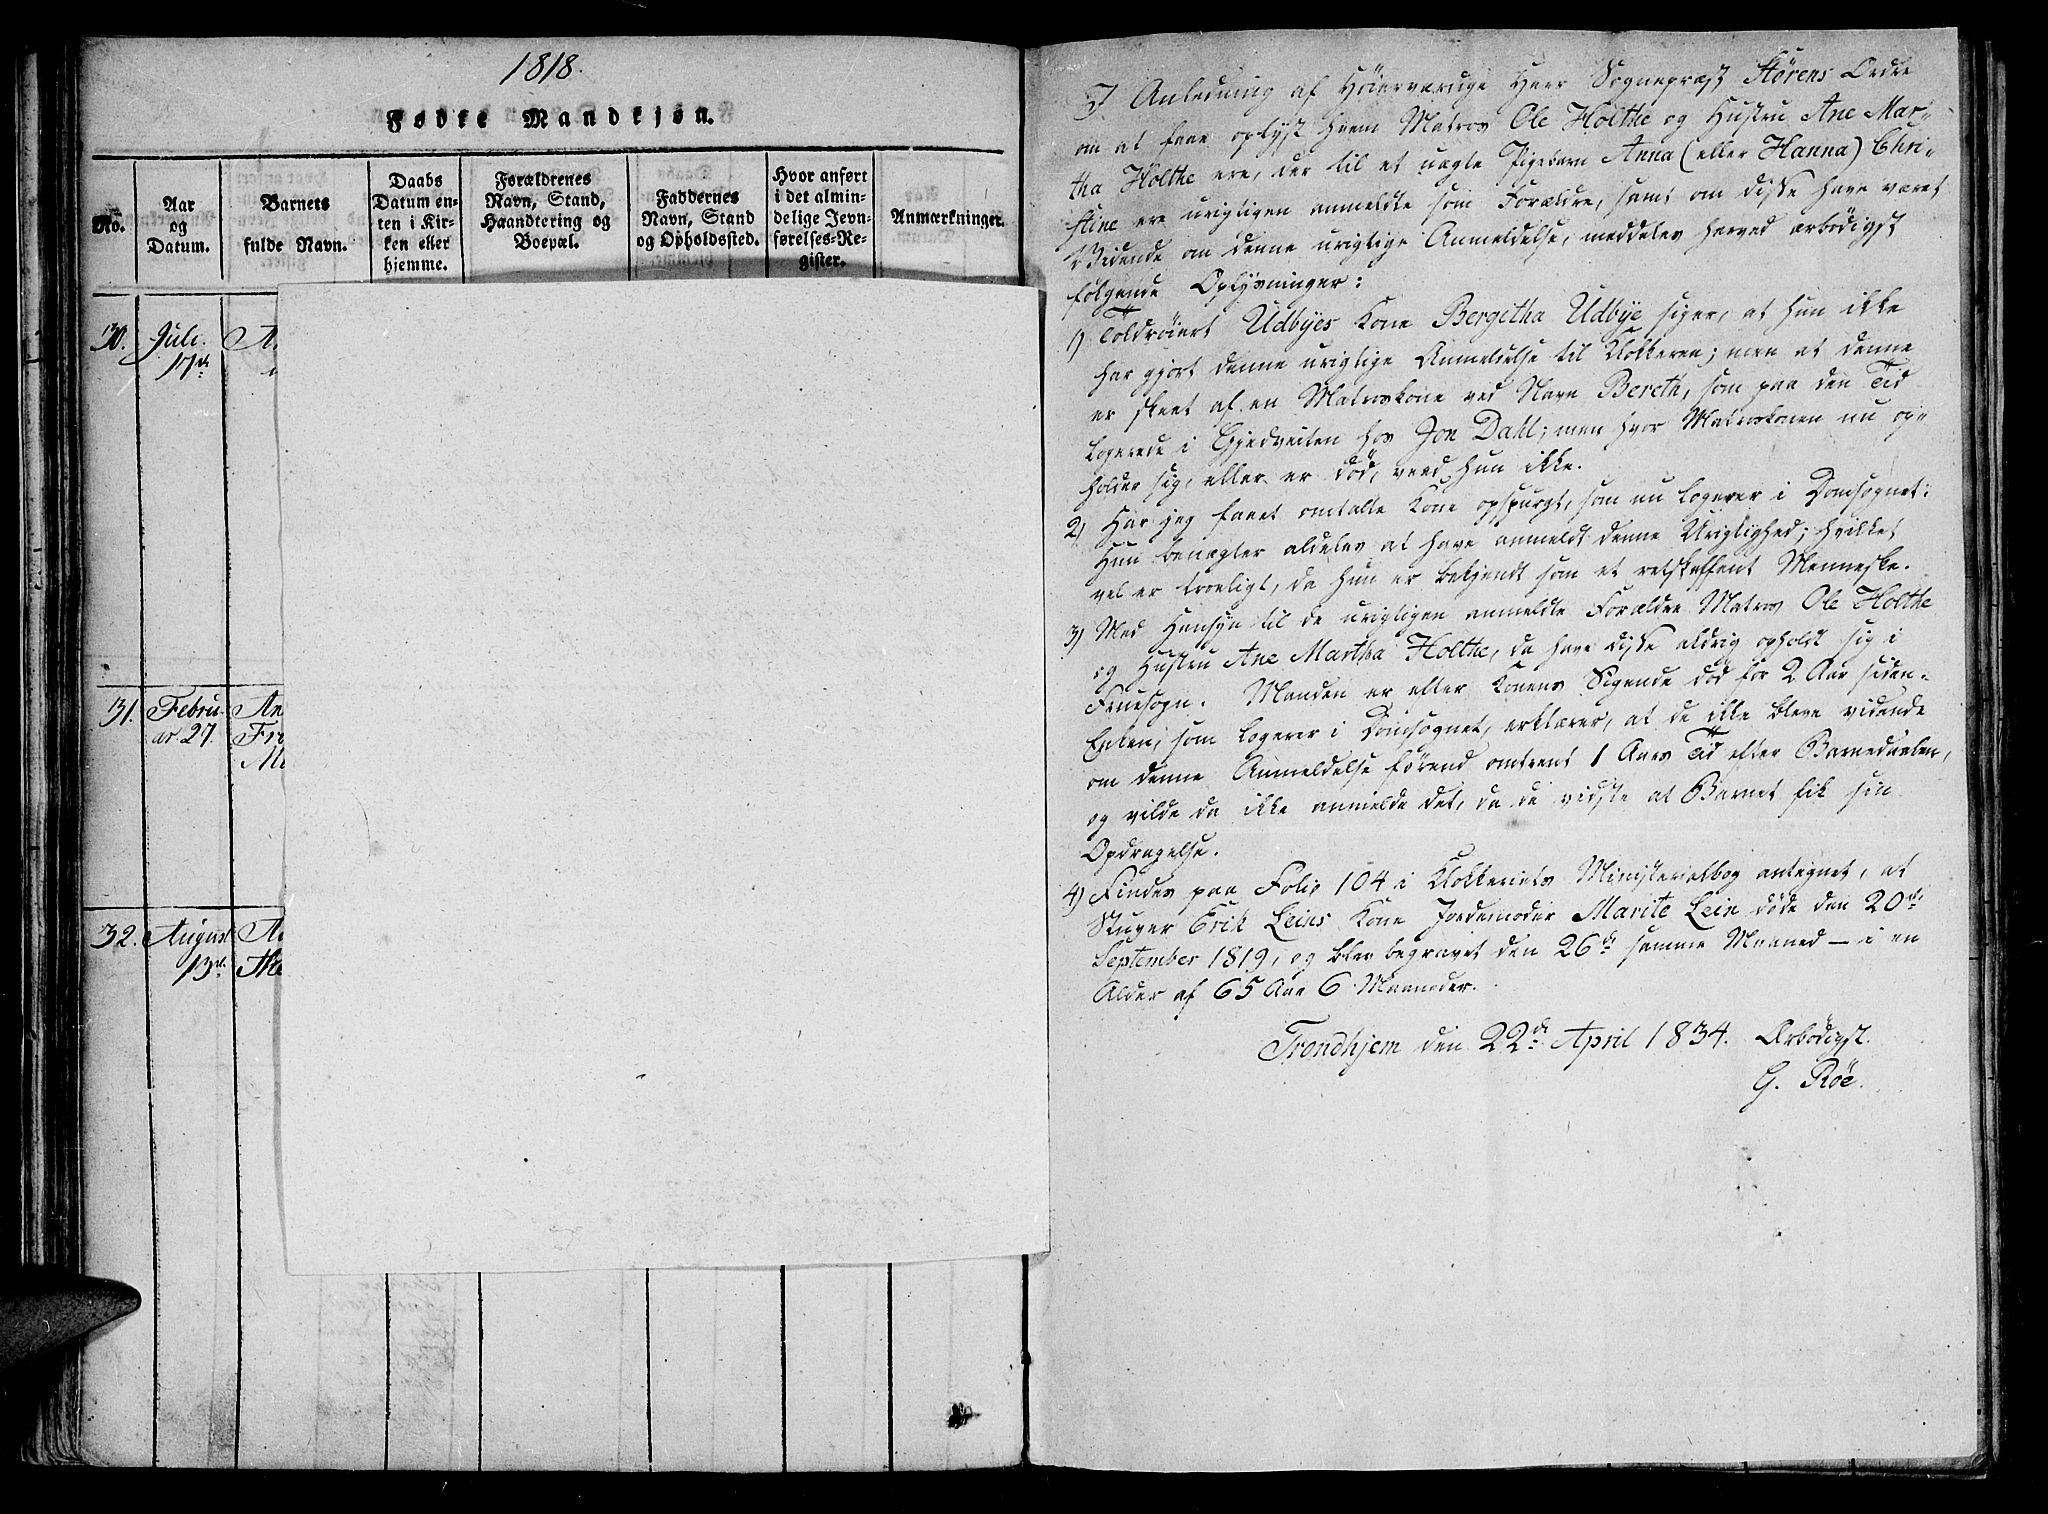 1818.
Fødte Mandkjøn.
No.
Aar og Datum.
Barnets fulde Navn.
Daabs Datum enten i Kirken eller hjemme.
Forældrenes Navn, Stand, Haandtering og Boepæl.
Faddernes Navn, Stand og Opholdssted.
Hvor anført i det almindelige Jevnførelses-Register.
Anmærkninger.
30. Juli. A
17de
31. Febru- An
ar. 27. Fr
M
32. August A
13de
I Anledning af Høiærværdige Herr Sognepræst Størens Ordre
om at faae oplyst hvem Matros Ole Holthe og Hustru Ane Mar-
tha Holthe ere, der til et uægte Pigebarn Anna (eller Hanna) Chri-
stine ere urigtigen anmeldte som Forældre, samt om disse have været
Vidende om denne urigtige Anmeldelse, meddeles herved ærbødigst
følgende Oplysninger:
1) Toldrøiert Udbyes Kone Bergitha Udbye siger, at hun ikke
har gjort denne urigtige Anmeldelse til Klokkeren; men at denne
er skeet af en Matroskone ved Navn Bereth, som paa den Tid
logerede i Gjedveiten hos Jon Dahl; men hvor Matroskonen nu op-
holder sig, eller er død, veed hun ikke.
2) Har jeg faaet omtalte Kone opspurgt, som nu logerer i Domsognet:
Hun benægter aldeles at have anmeldt denne Urigtighed; hvilket
vel er troeligt, da hun er bekjendt som et retskaffent Menneske.
3) Med Hensyn til de urigtigen anmeldte Forældre Matros Ole Holthe
og Hustru Ane Martha Holthe, da have disse aldrig opholdt sig i
Fruesogn. Manden er efter Konens Sigende død for 2 Aar siden.
Enken, som logerer i Domsognet, erklærer, at de ikke bleve vidende
om denne Anmeldelse førend omtrent 1 Aars Tid efter Barnedaaben,
og vilde da ikke anmelde det, da de vidste at Barnet fik sin
Opdragelse.
4) Findes paa Folio 104 i Klokkeriets Ministerialbog antegnet, at
Stuper Erik Leins Kone Jordemoder Marite Lein døde den 20de
September 1819, og blev begravet den 26de samme Maaned – i en
Alder af 65 Aar 6 Maaneder.
Trondhjem den 22de April 1834. Ærbødigst.
G. Röe.